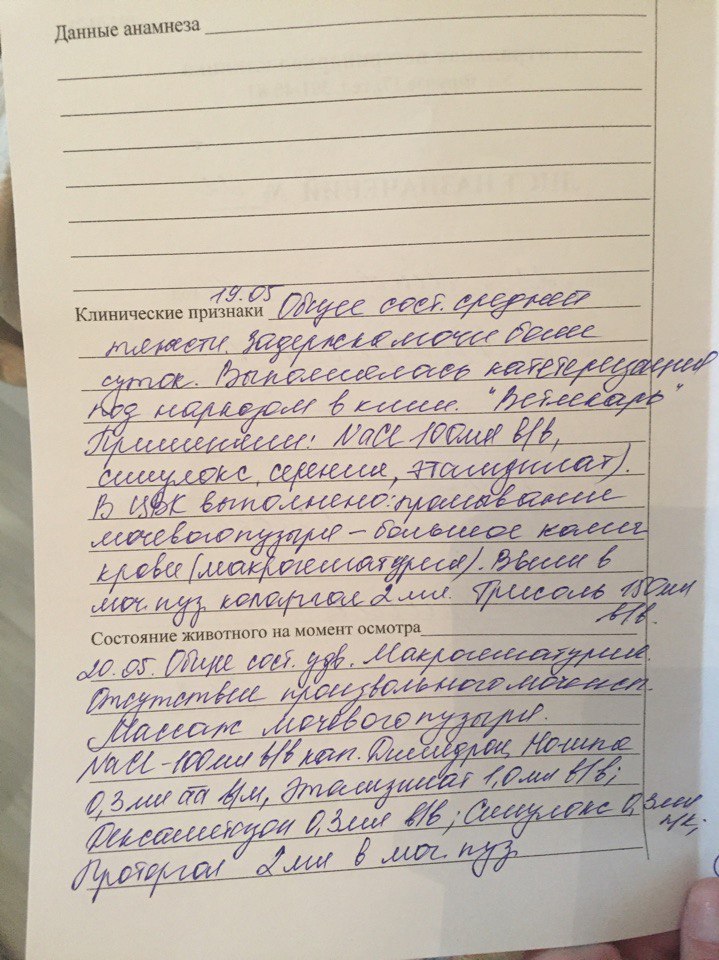 Данные анамнеза
19.05
Клинические признаки Общее сост. средней
тяжести. Задержка мочи более
суток. Выполнялась катетеризация
под наркозом в клин. "Ветлекарь"
Применяли: NaCl 100мл в/в,
синулокс, серения, этамзилат).
В ЦВК выполнено: промывание
мочевого пузыря – большое колич
крови (макрогематурия). Ввели в
моч. пуз. колларгол 2 мл. Трисоль 150мл
в/в.
Состояние животного на момент осмотра
20.05. Общее сост. удв. Макрогематурия.
Отсутствие произвольного мочеисп.
Массаж мочевого пузыря.
NaCl – 100мл в/в кап. Димедрол, Ношпа
0,3мл аа в/м, Этамзилат 1,0мл в/в;
Дексаметазон 0,3мл в/в; Синулокс 0,3мл
п/к;
Проторгол 2 мл в моч. пуз.